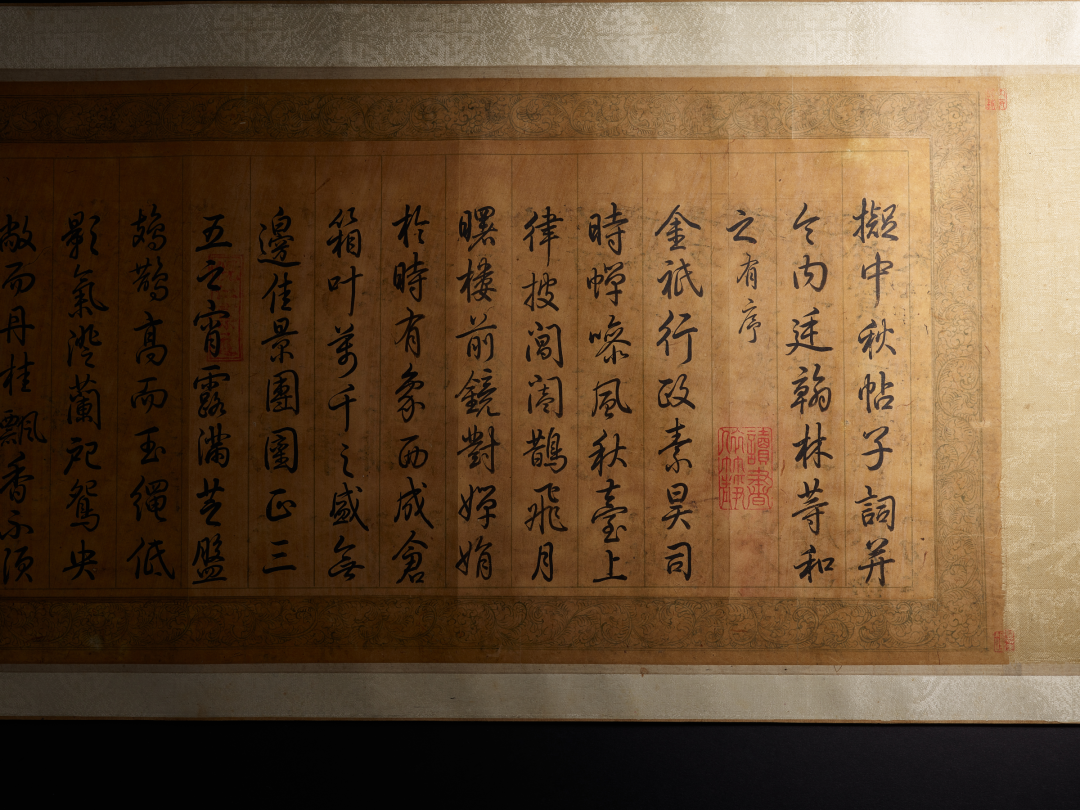 擬中秋帖子詞并
令内廷翰林等和
之有序
金祇行政素昊司
時蟬噪風秋臺上
律披閶闔鵲飛月
曙楼前鏡對嬋娟
於時有象西成倉
箱叶萬千之盛無
邊佳景團圞正三
五之宵露滿芝盤
鳷鵲髙而玉繩低
影氣澄蘭鴛央
敞而丹桂飄香不須
讀書